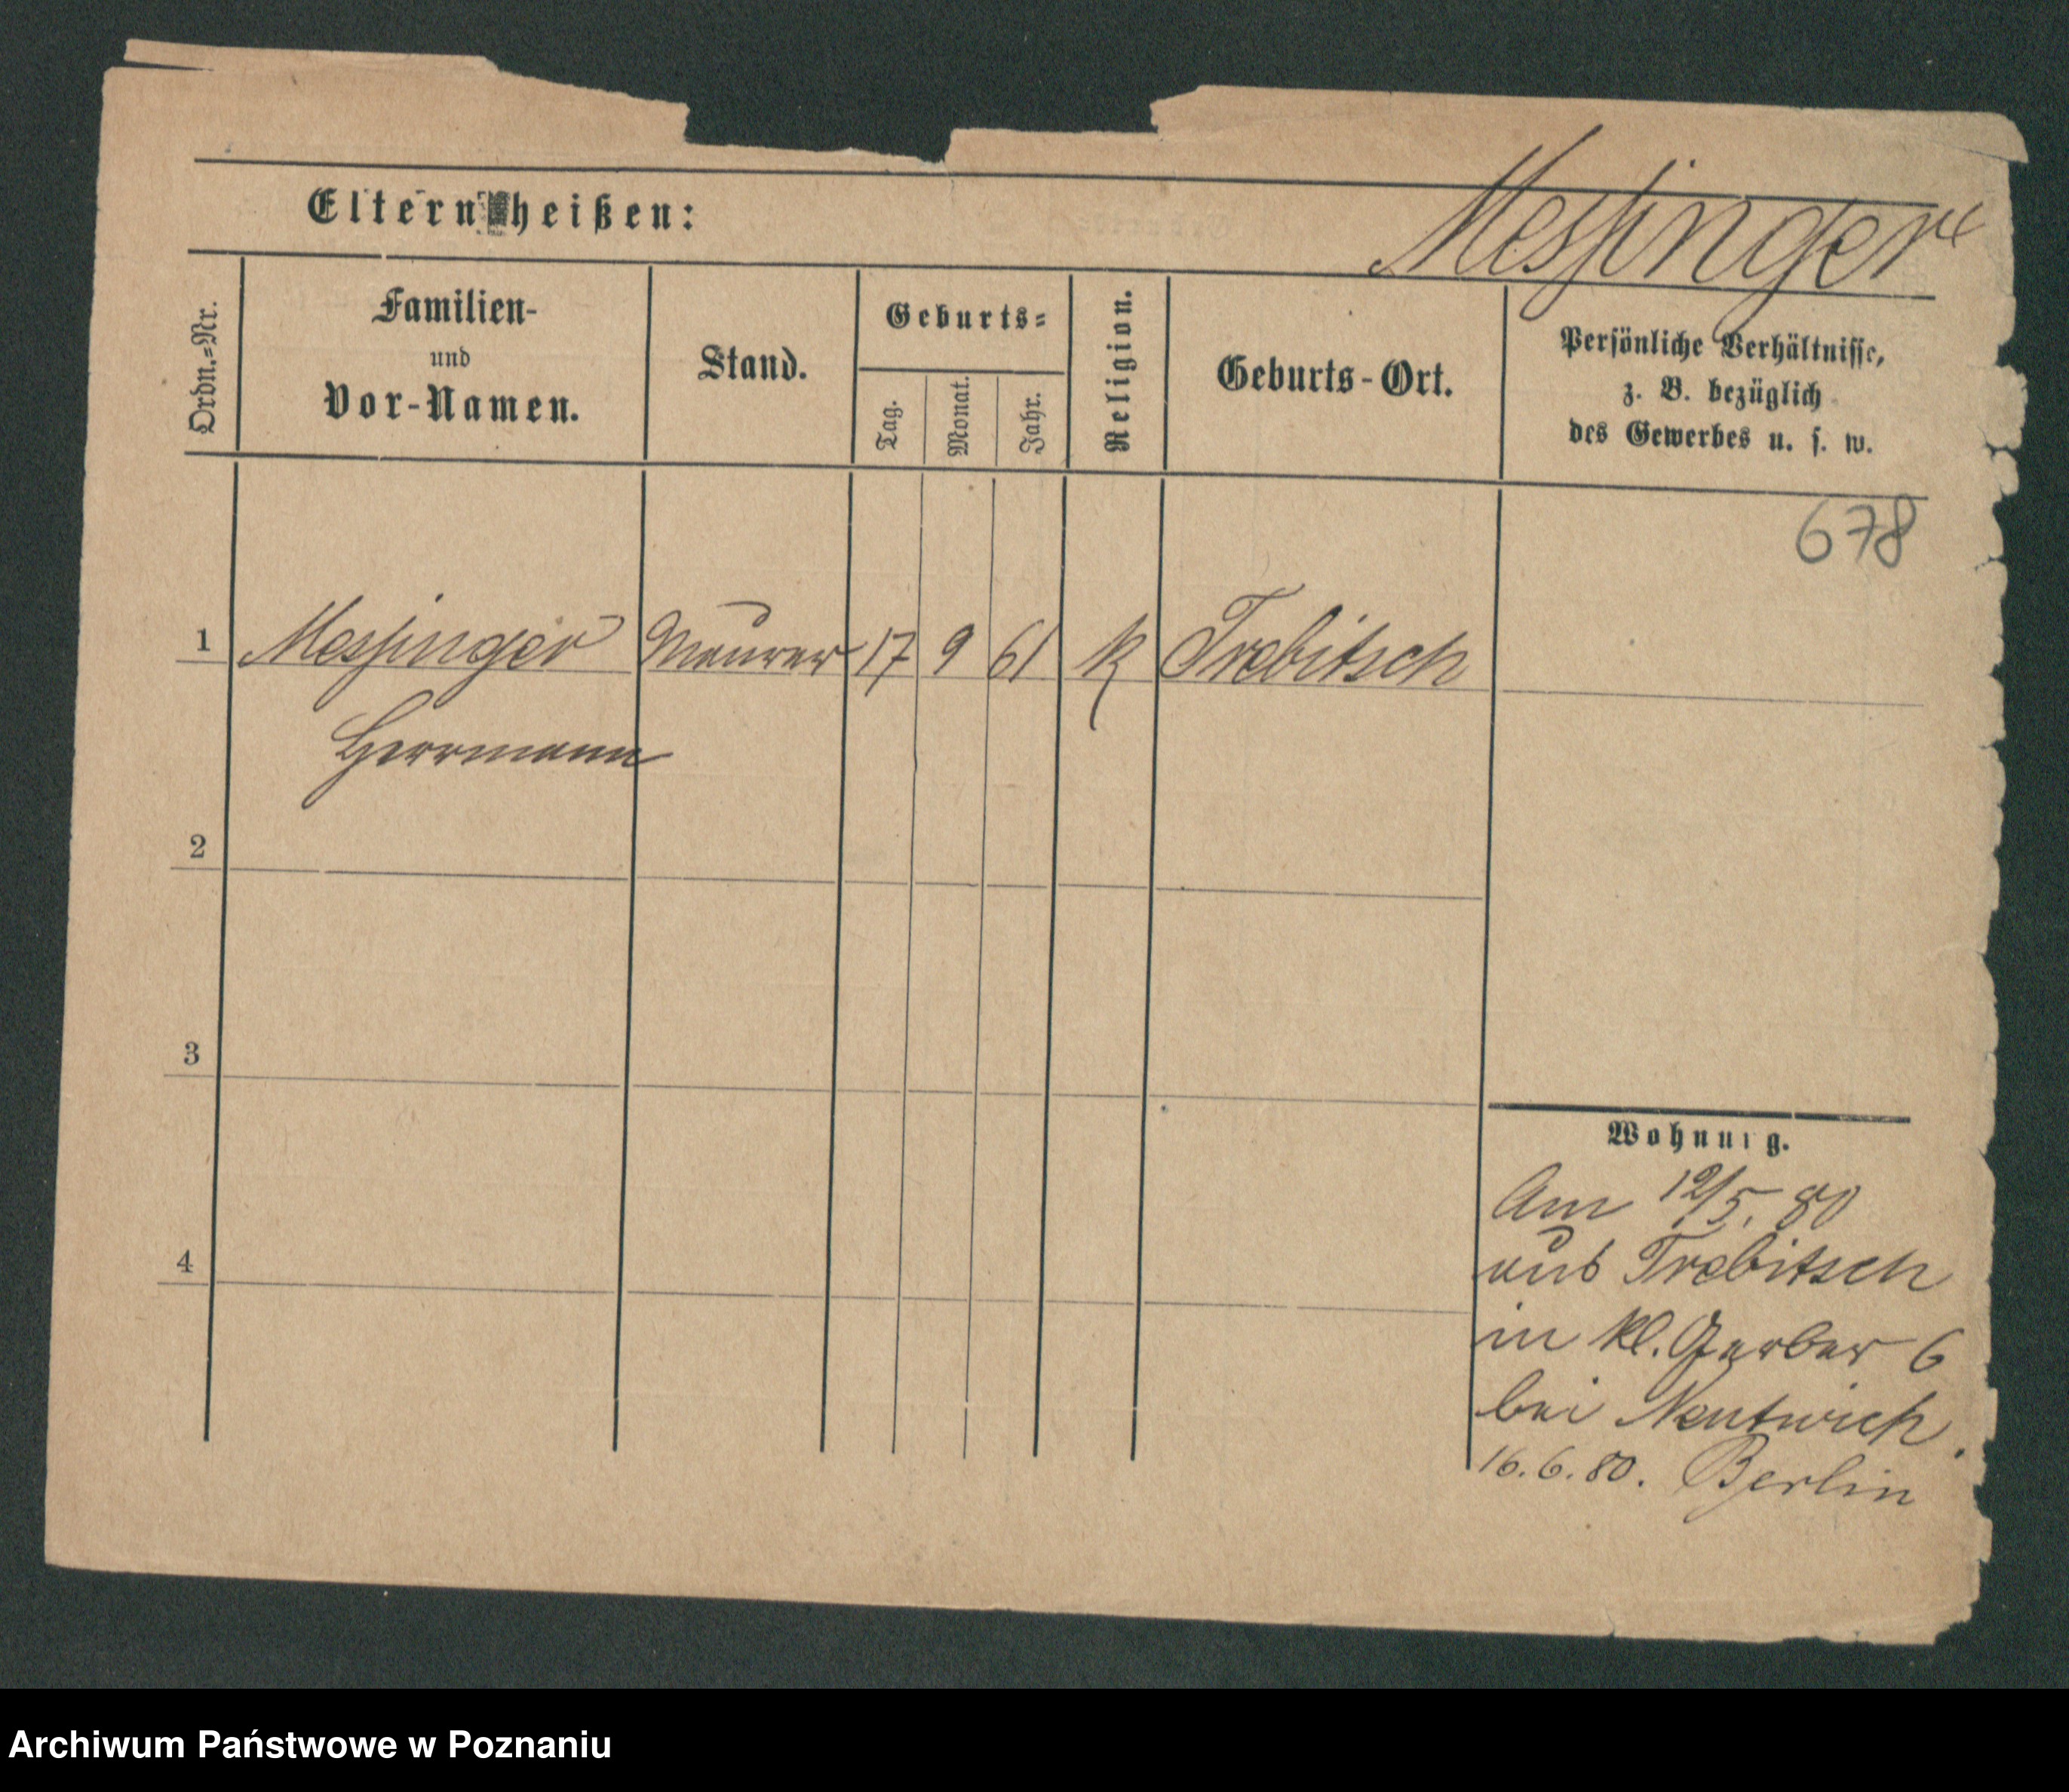 Eltern heißen:
Messinger
Ordn.=Nr.
Familien-
und
Vor-Namen.
Stand.
Geburts=
Tag.
Monat.
Jahr.
Religion.
Geburts-Ort.
Persönliche Verhältnisse,
z. B. bezüglich
des Gewerbes u. s. w.
678
1 Messinger Maurer 17 9 61 k Trebitsch
Herrmann
2
3
4
Wohnung.
Am 12/5. 80
aus Trebitsch
in kl. Gerber 6
bei Nentwich.
16.6.80. Berlin
Archiwum Państwowe w Poznaniu